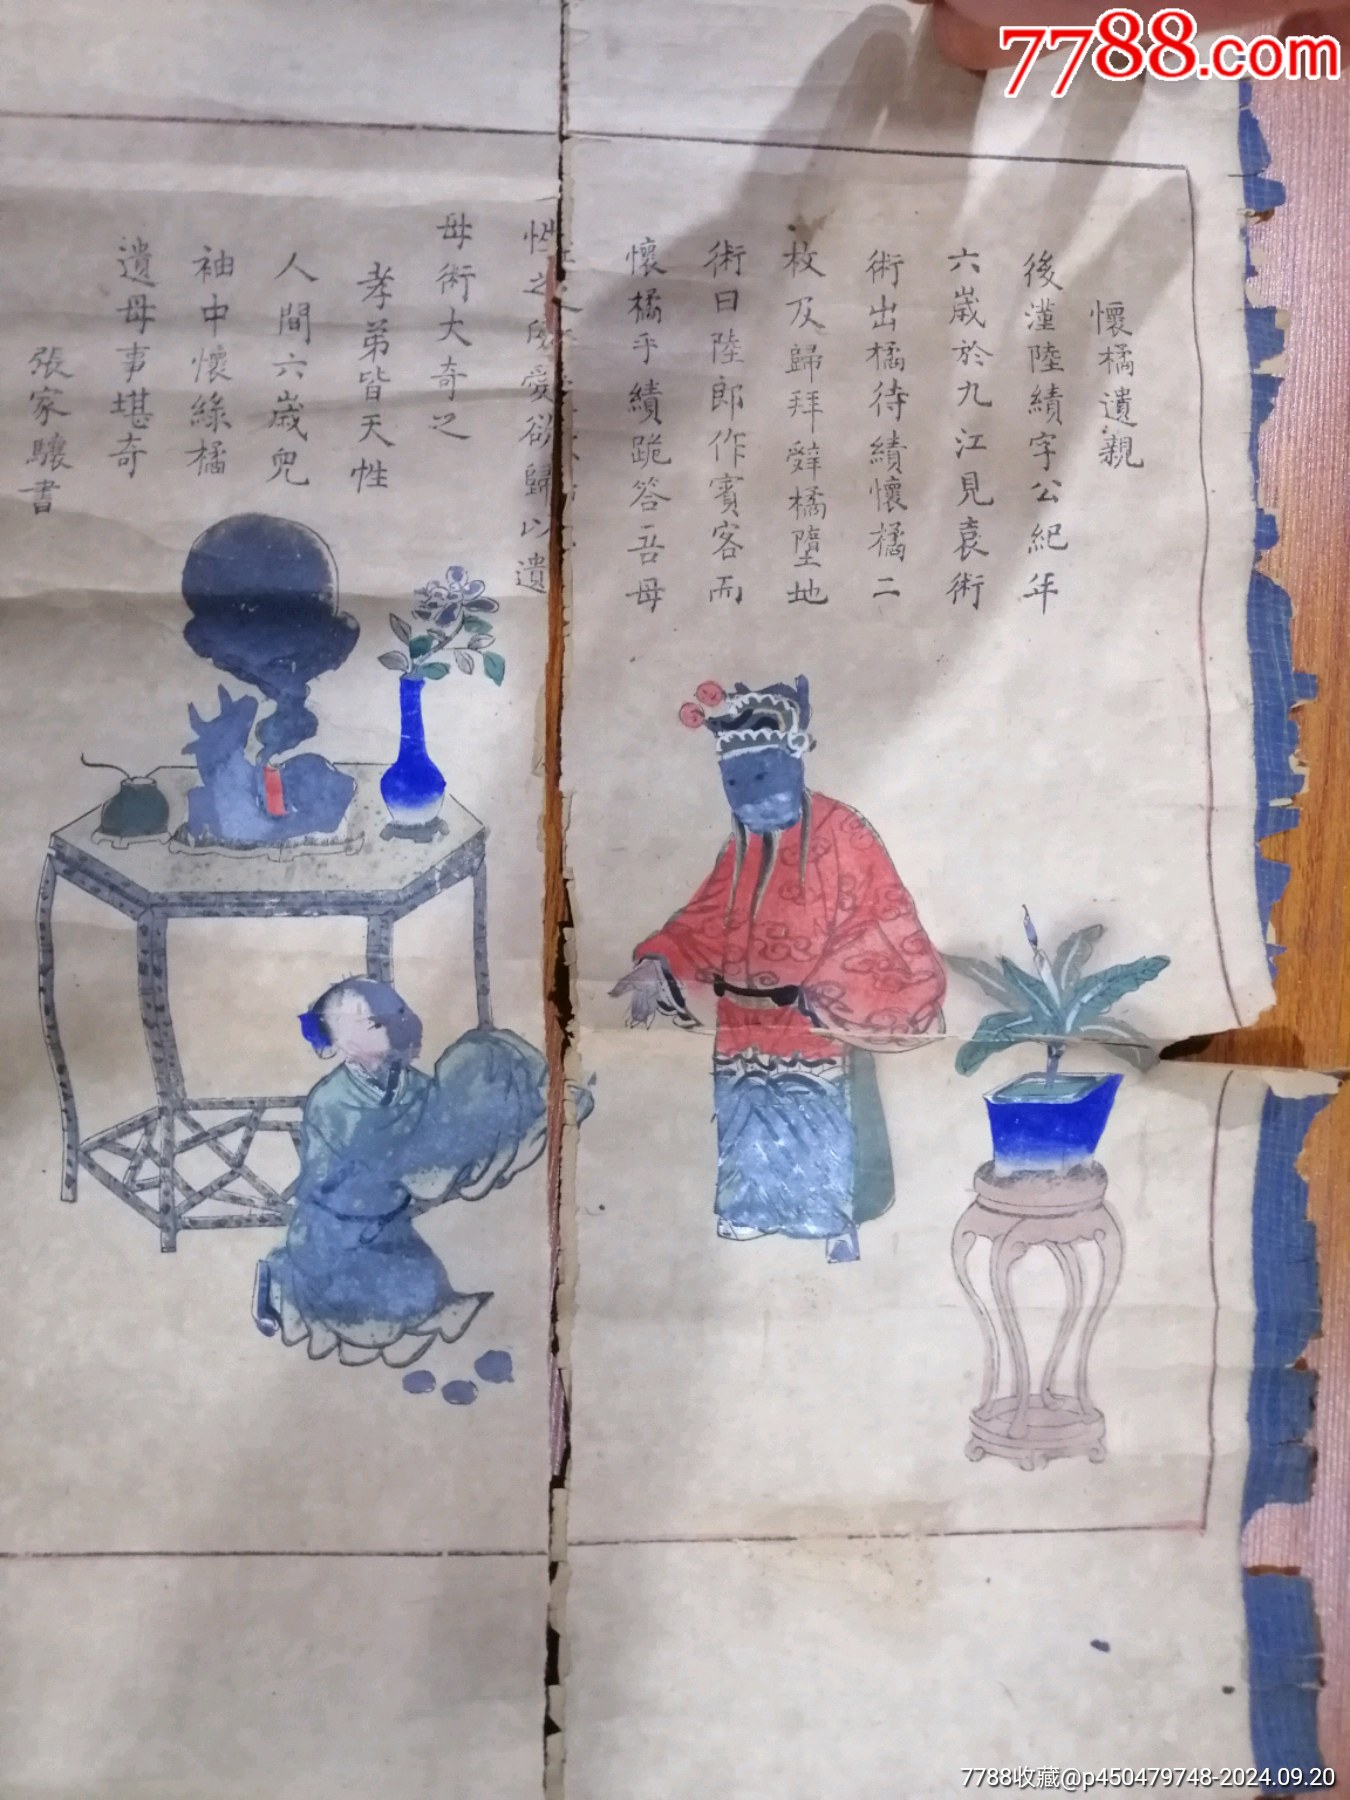 7788.com
懷橘遺親
後漢陸績字公紀年
六歲於九江見袁術
術出橘待績懷橘二
枚及歸拜辤橘墮地
術曰陸郎作賓客而
懷橘乎績跪答吾母
性之所愛欲歸以遺
母術大奇之
孝弟皆天性
人間六歲兒
袖中懷綠橘
遺母事堪奇
張家驤書
7788收藏@p450479748-2024.09.20